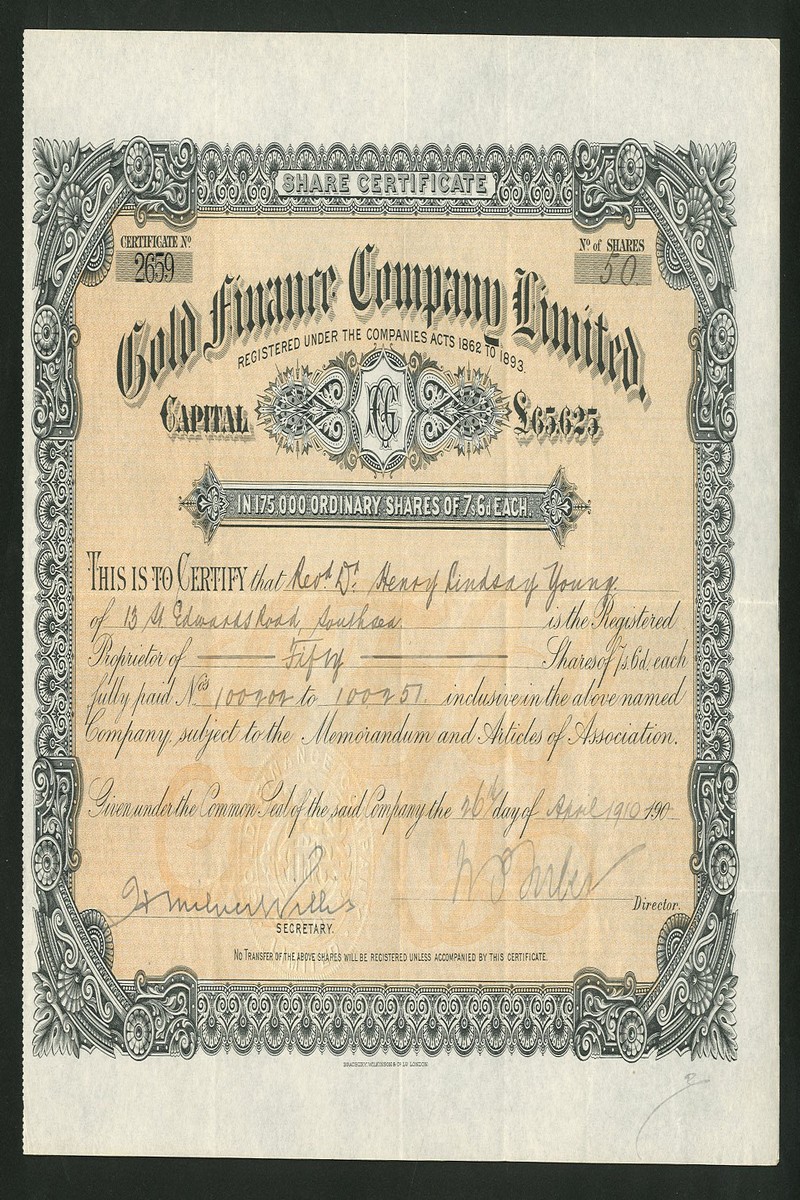 SHARE CERTIFICATE
CERTIFICATE Nº
2659
Nº of SHARES
50
Gold Finance Company Limited.
REGISTERED UNDER THE COMPANIES ACTS 1862 TO 1893.
CAPITAL £65,625
IN 175,000 ORDINARY SHARES OF 7s6d EACH.
THIS IS TO CERTIFY that Revd Dr. Henry Lindsay Young
of 13 St Edwards Road, Southsea is the Registered
Proprietor of Fifty Shares of 7s6d. each
fully paid Nos 100202 to 100251 inclusive in the above named
Company, subject to the Memorandum and Articles of Association.
Given under the Common Seal of the said Company the 26th day of April 1910 190
Director.
SECRETARY.
NO TRANSFER OF THE ABOVE SHARES WILL BE REGISTERED UNLESS ACCOMPANIED BY THIS CERTIFICATE.
BRADBURY, WILKINSON & Co Ld LONDON